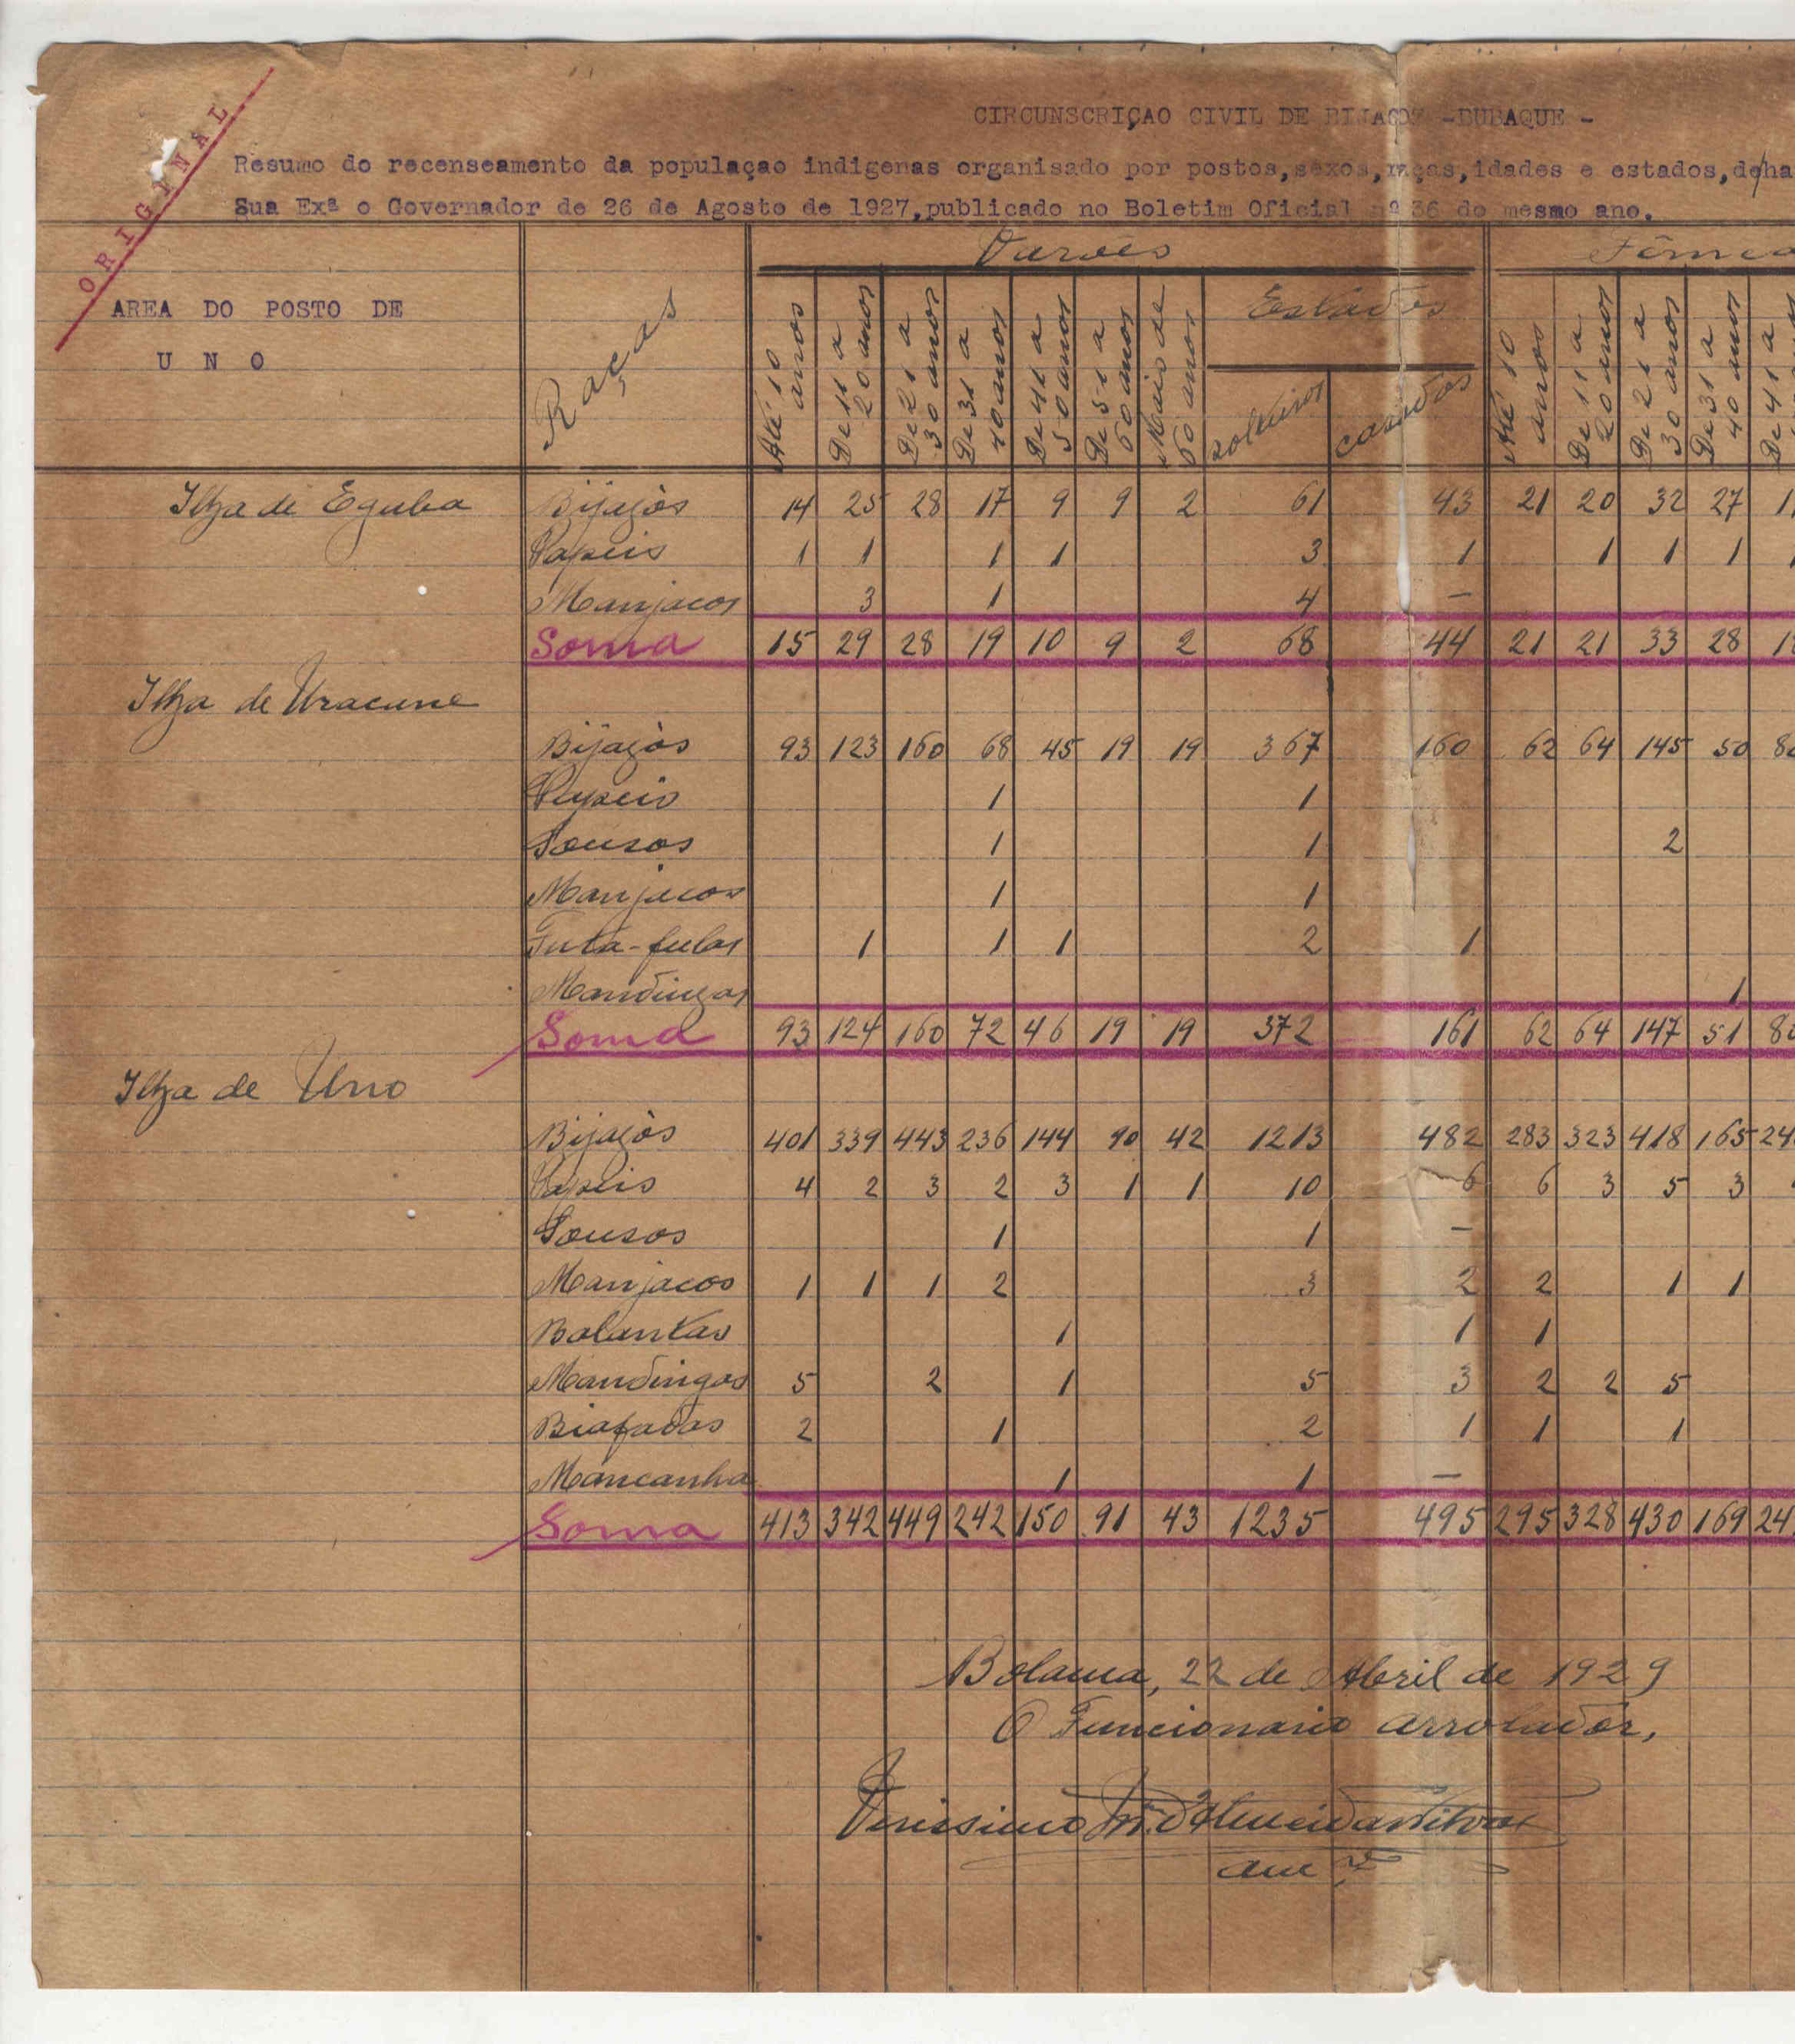 ORIGINAL
CIRCUNSCRIÇAO CIVIL DE BIJAGOZ -BUBAQUE -
Resumo do recenseamento da populaçao indigenas organisado por postos,sexos,raças,idades e estados,de/ha
Sua Exª o Governador de 26 de Agosto de 1927,publicado no Boletim Oficial nº 36 do mesmo ano.
AREA DO POSTO DE
U N O
Raças
Varões
Fêmea
Estados
Até 10 anos
De 11 a 20 anos
De 21 a 30 anos
De 31 a 40 anos
De 41 a 50 anos
De 51 a 60 anos
Mais de 60 anos
solteiros
casados
Até 10 anos
De 11 a 20 anos
De 21 a 30 anos
De 31 a 40 anos
De 41 a
Ilha de Eguba Bijagòs 14 25 28 17 9 9 2 61 43 21 20 32 27 1
Papeis 1 1 1 1 3 1 1 1 1
Manjacos 3 1 4 –
Soma 15 29 28 19 10 9 2 68 44 21 21 33 28 1
Ilha de Uracune
Bijagòs 93 123 160 68 45 19 19 367 160 62 64 145 50 8
Papeis 1 1
Sousos 1 1 2
Manjacos 1 1
Futa-fulas 1 1 1 2 1
Mandingas 1
Soma 93 124 160 72 46 19 19 372 161 62 64 147 51 8
Ilha de Uno
Bijagòs 401 339 443 236 144 90 42 1213 482 283 323 418 165 24
Papeis 4 2 3 2 3 1 1 10 6 6 3 5 3
Sousos 1 1 –
Manjacos 1 1 1 2 3 2 2 1 1
Balantas 1 1 1
Mandingas 5 2 1 5 3 2 2 5
Biafadas 2 1 2 1 1 1
Mancanha 1 1 –
Soma 413 342 449 242 150 91 43 1235 495 295 328 430 169 24
Bolama, 22 de Abril de 1929
O Funcionario arrolador,
Verissimo